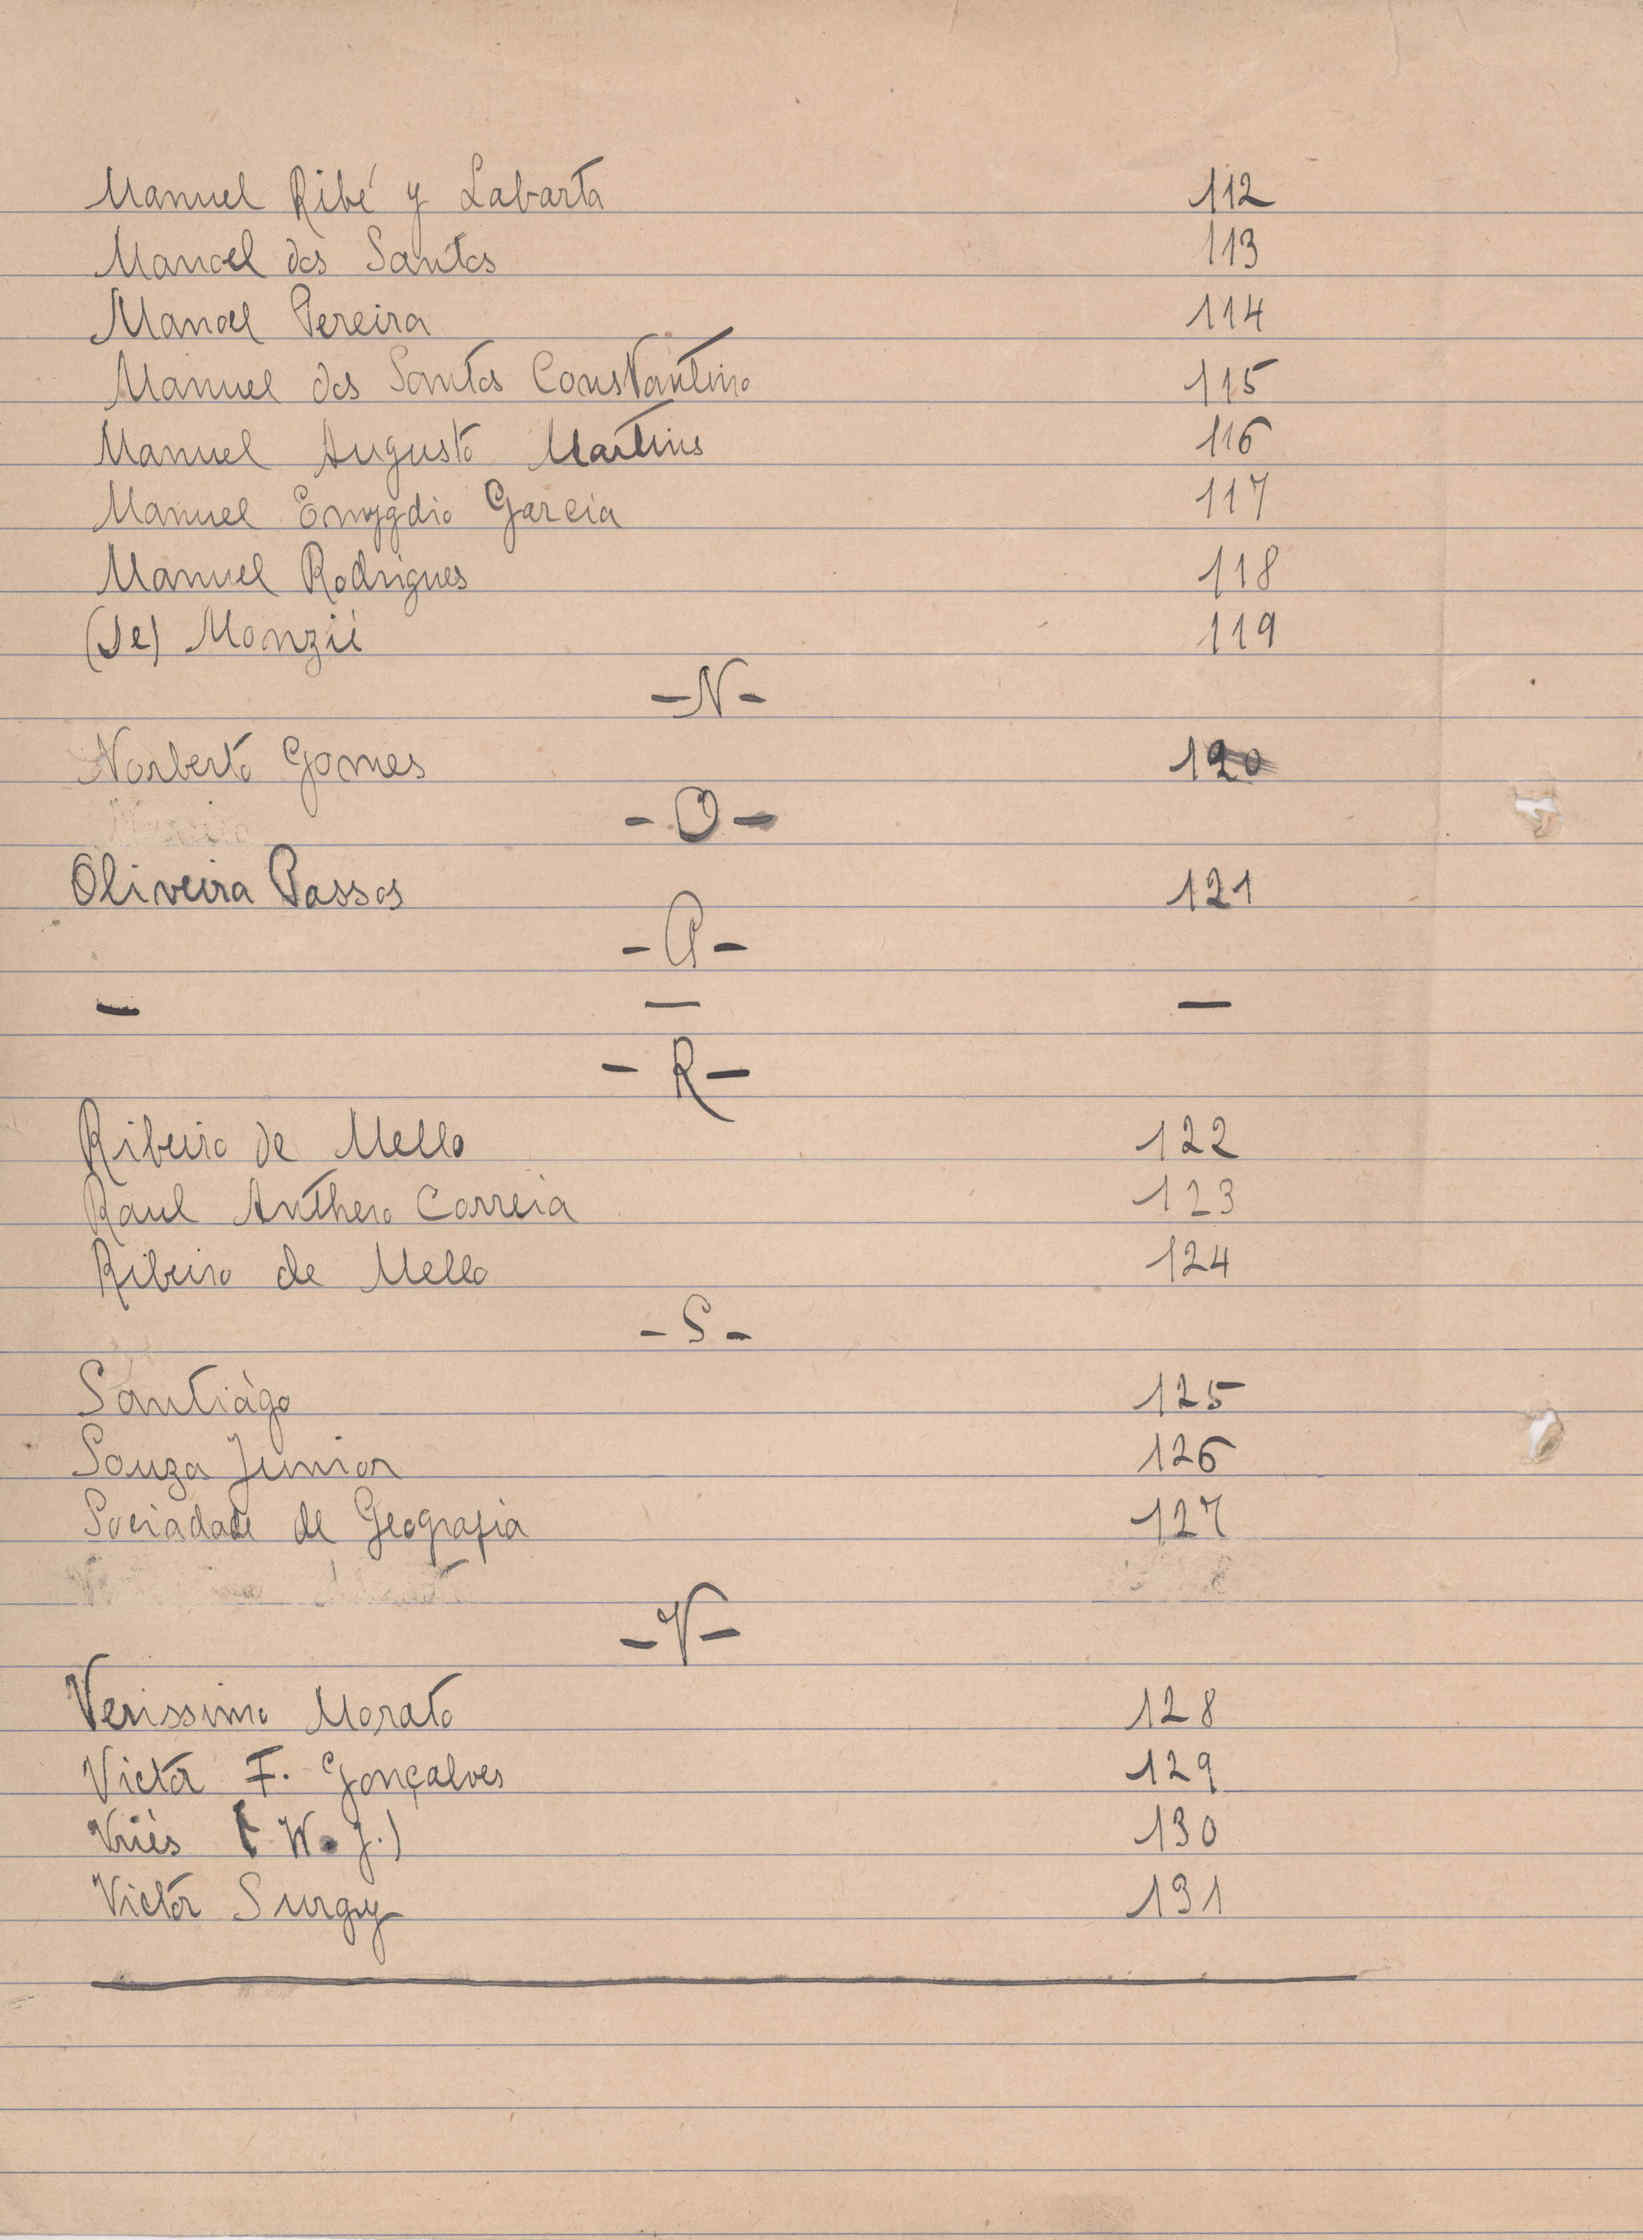 Manuel Ribé y Labarta 112
Manoel dos Santos 113
Manoel Pereira 114
Manuel dos Santos Constantino 115
Manuel Augusto Martins 116
Manuel Emygdio Garcia 117
Manuel Rodrigues 118
(de) Monzié 119
-N-
Norberto Gomes 120
-O-
Oliveira Passos 121
-P-
— — —
-R-
Ribeiro de Mello 122
Raul Anthero Correia 123
Ribeiro de Mello 124
-S-
Santiágo 125
Souza Junior 126
Sociadade de Geografia 127
-V-
Verissimo Morato 128
Victor F. Gonçalves 129
Vriés (W. J.) 130
Victor Surgy 131